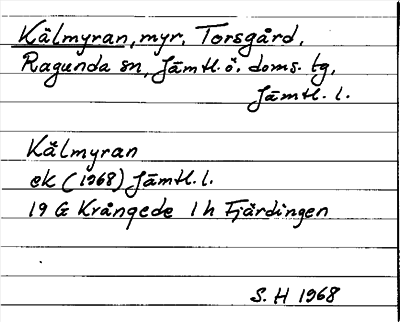 Kälmyran, myr, Torsgård,
Ragunda sn, Jämtl. ö. doms. tg,
Jämtl. l.
Kälmyran
ek (1968) Jämtl. l.
19 G Krångede 1 h Fjärdingen
S. H 1968